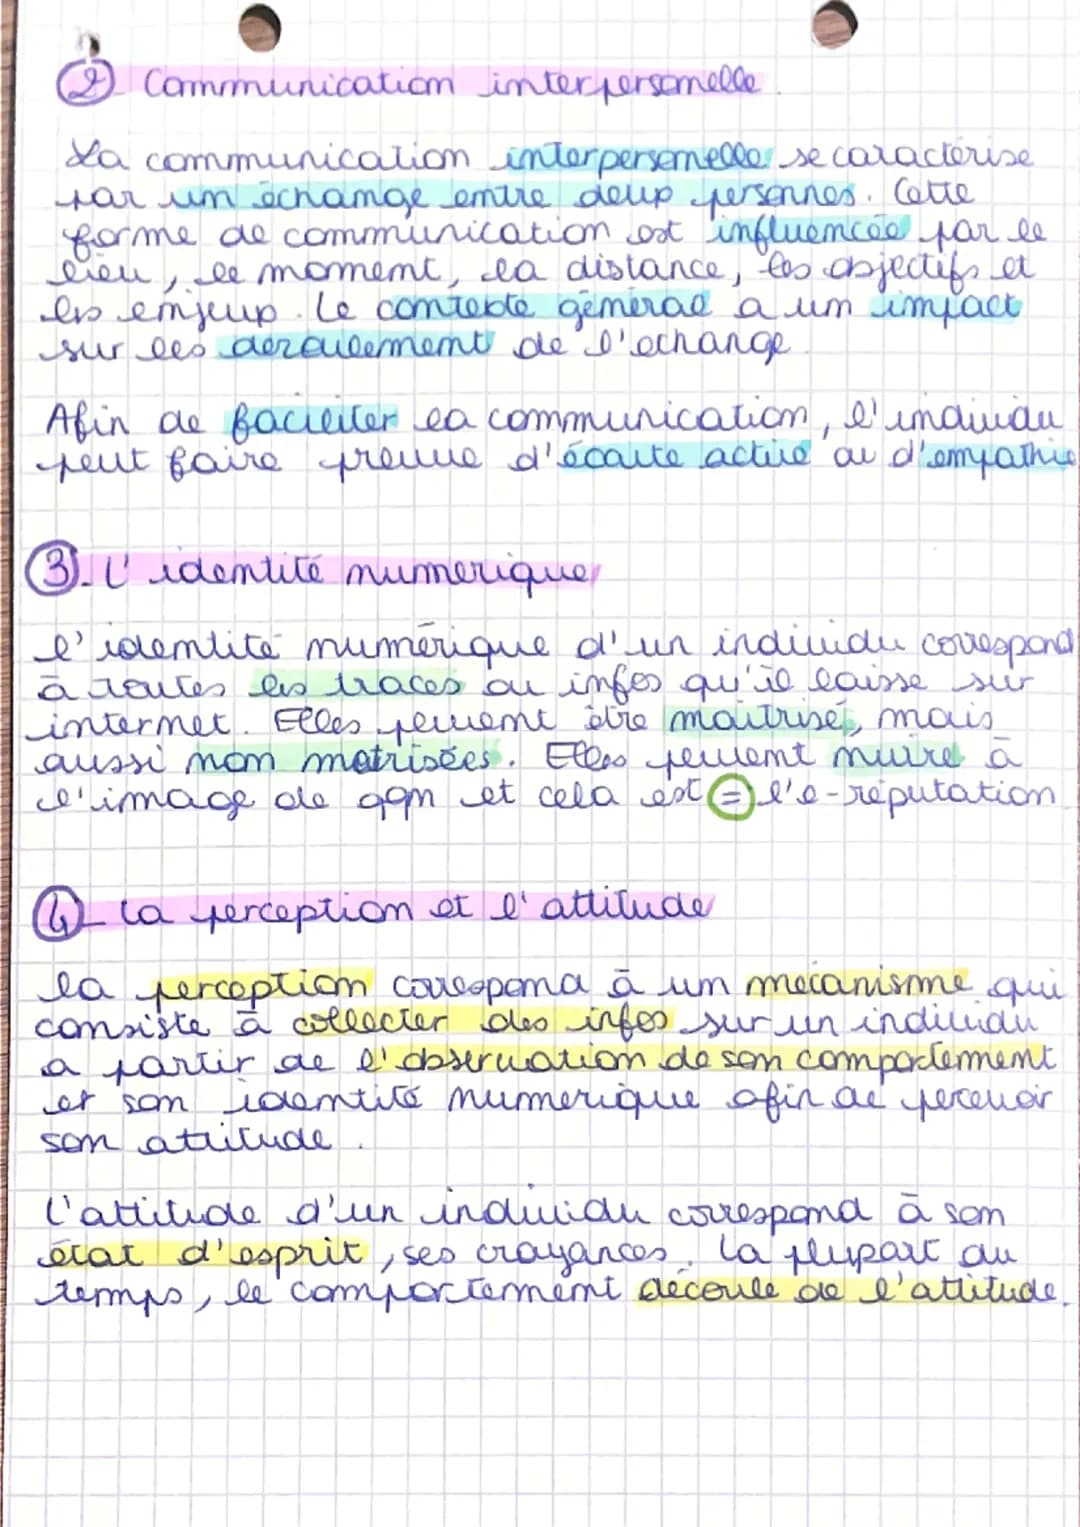 2 Communication interpersonnelle.
La communication interpersonnelle se caractérise
par un échange entre deux personnes. Cette
forme de communication est influencée par le
lieu, le moment, la distance, les objectifs et
les enjeux. Le contexte général a um impact
sur les deroulement de l'echange
Afin de faciliter la communication, l'individu
peut faire preuve d'écoute active ou d'empathie
3. L'identité numerique
l'identité numérique d'un individu correspond
à toutes les traces ou infos qu'il laisse sur
internet. Elles peuvent être maitrisé, mais
aussi non matrisées. Elles peuvent nuire à
l'image de qqn et cela est = l'e-réputation
4- La perception et l'attitude
la perception correspond à un mécanisme qui
consiste à collecter des infos sur un individu
a partir de l'observation de son comportement
et son identité numerique afin de percevoir
son attitude.
L'attitude d'un individu correspond à son
état d'esprit, ses croyances. La plupart du
temps, le comportement découle de l'attitude.